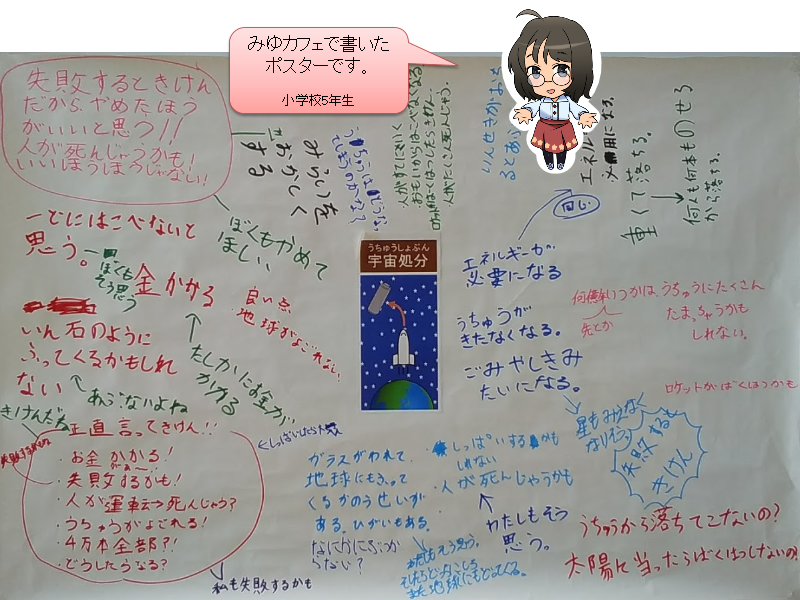 みゆカフェで書いた
ポスターです。
小学校5年生
失敗するときけん
だから、やめたほう
がいいと思う!!
人が死んじゃうかも!
いいほうほうじゃない!
みらいを
おかしく
する
ぼくもやめて
ほしい
一どにはこべないと
思う。
ぼくも
そう思う
金かかる
良い点
地球がよごれない。
いん石のように
ふってくるかもしれ
ない
あぶないよね
たしかにお金が
かかる
きけんだね
正直言ってきけん!!
・お金かかる!
・失敗するかも!
・人が運転→死んじゃう?
・うちゅうがよごれる!
・4万本全部?!
・どうしたらなる?
私も失敗するかも
うちゅうしょぶん
宇宙処分
エネルギーが
必要になる
同じ
うちゅうが
きたなくなる。
ごみやしきみ
たいになる。
重くて落ちる。
何人も何本ものせろ
から落ちる。
いつかは、うちゅうにたくさん
たまっちゃうかも
しれない。
ロケットがばくはつかも
星もみえなく
なりそう
失敗する
きけん
ガラスがわれて
地球にもどって
くるかのうせいが
ある。ひがいもある。
なにかにぶつか
らない?
しっぱいするかも
しれない
・人が死んじゃうかも
わたしもそう
思う。
うちゅうから落ちてこないの?
太陽に当ったらばくはつしないの?